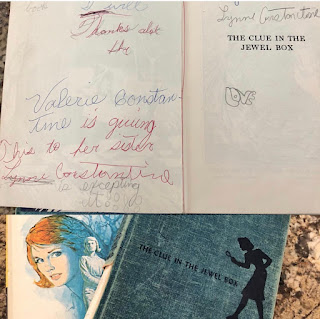 I will
Thanks alot
Valerie Constan-
tine is giving
This to her sister
Lynne Constantine
is excepting
it
Lynne Constantine
THE CLUE IN THE
JEWEL BOX
BYE
THE CLUE IN THE JEWEL BOX